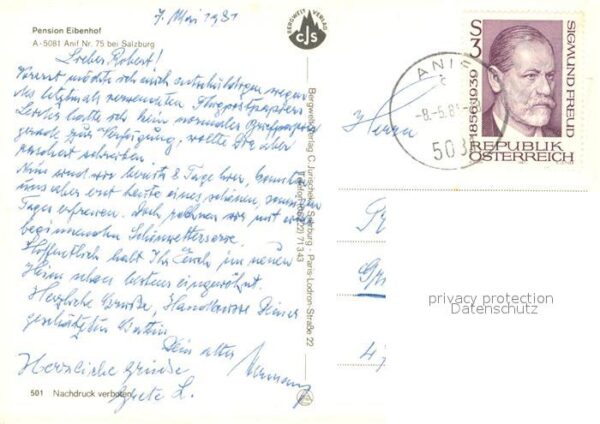 7. Mai 1981
Pension Eibenhof
A-5081 Anif Nr. 75 bei Salzburg
Lieber Robert!
Vorerst möchte ich mich entschuldigen wegen
des letztmals verwendeten Flugpostpapiers.
Leider hatte ich kein normales Briefpapier
gerade zur Verfügung, wollte Dir aber
raschest schreiben.
Nun sind wir bereits 8 Tage hier, konnten
uns aber erst heute eines schönen, sonnigen
Tages erfreuen. Doch rechnen wir mit
beginnenden Schönwetterserie.
Hoffentlich habt Ihr Euch im neuen
Heim schon bestens eingewöhnt.
Herzliche Grüße, Handküsse Deiner
geschätzten Gattin
Dein alter
Hermann
Herzliche Grüße
Grete L.
501 Nachdruck verboten
BERGWELT VERLAG
CJS
Bergwelt-Verlag C. Jurischek, Salzburg - Paris-Lodron-Straße 22
Telefon (06222) 71343
Herrn
ANIF
-8.-5.81
508
S 3
1856-1939
SIGMUND FREUD
REPUBLIK
ÖSTERREICH
privacy protection
Datenschutz